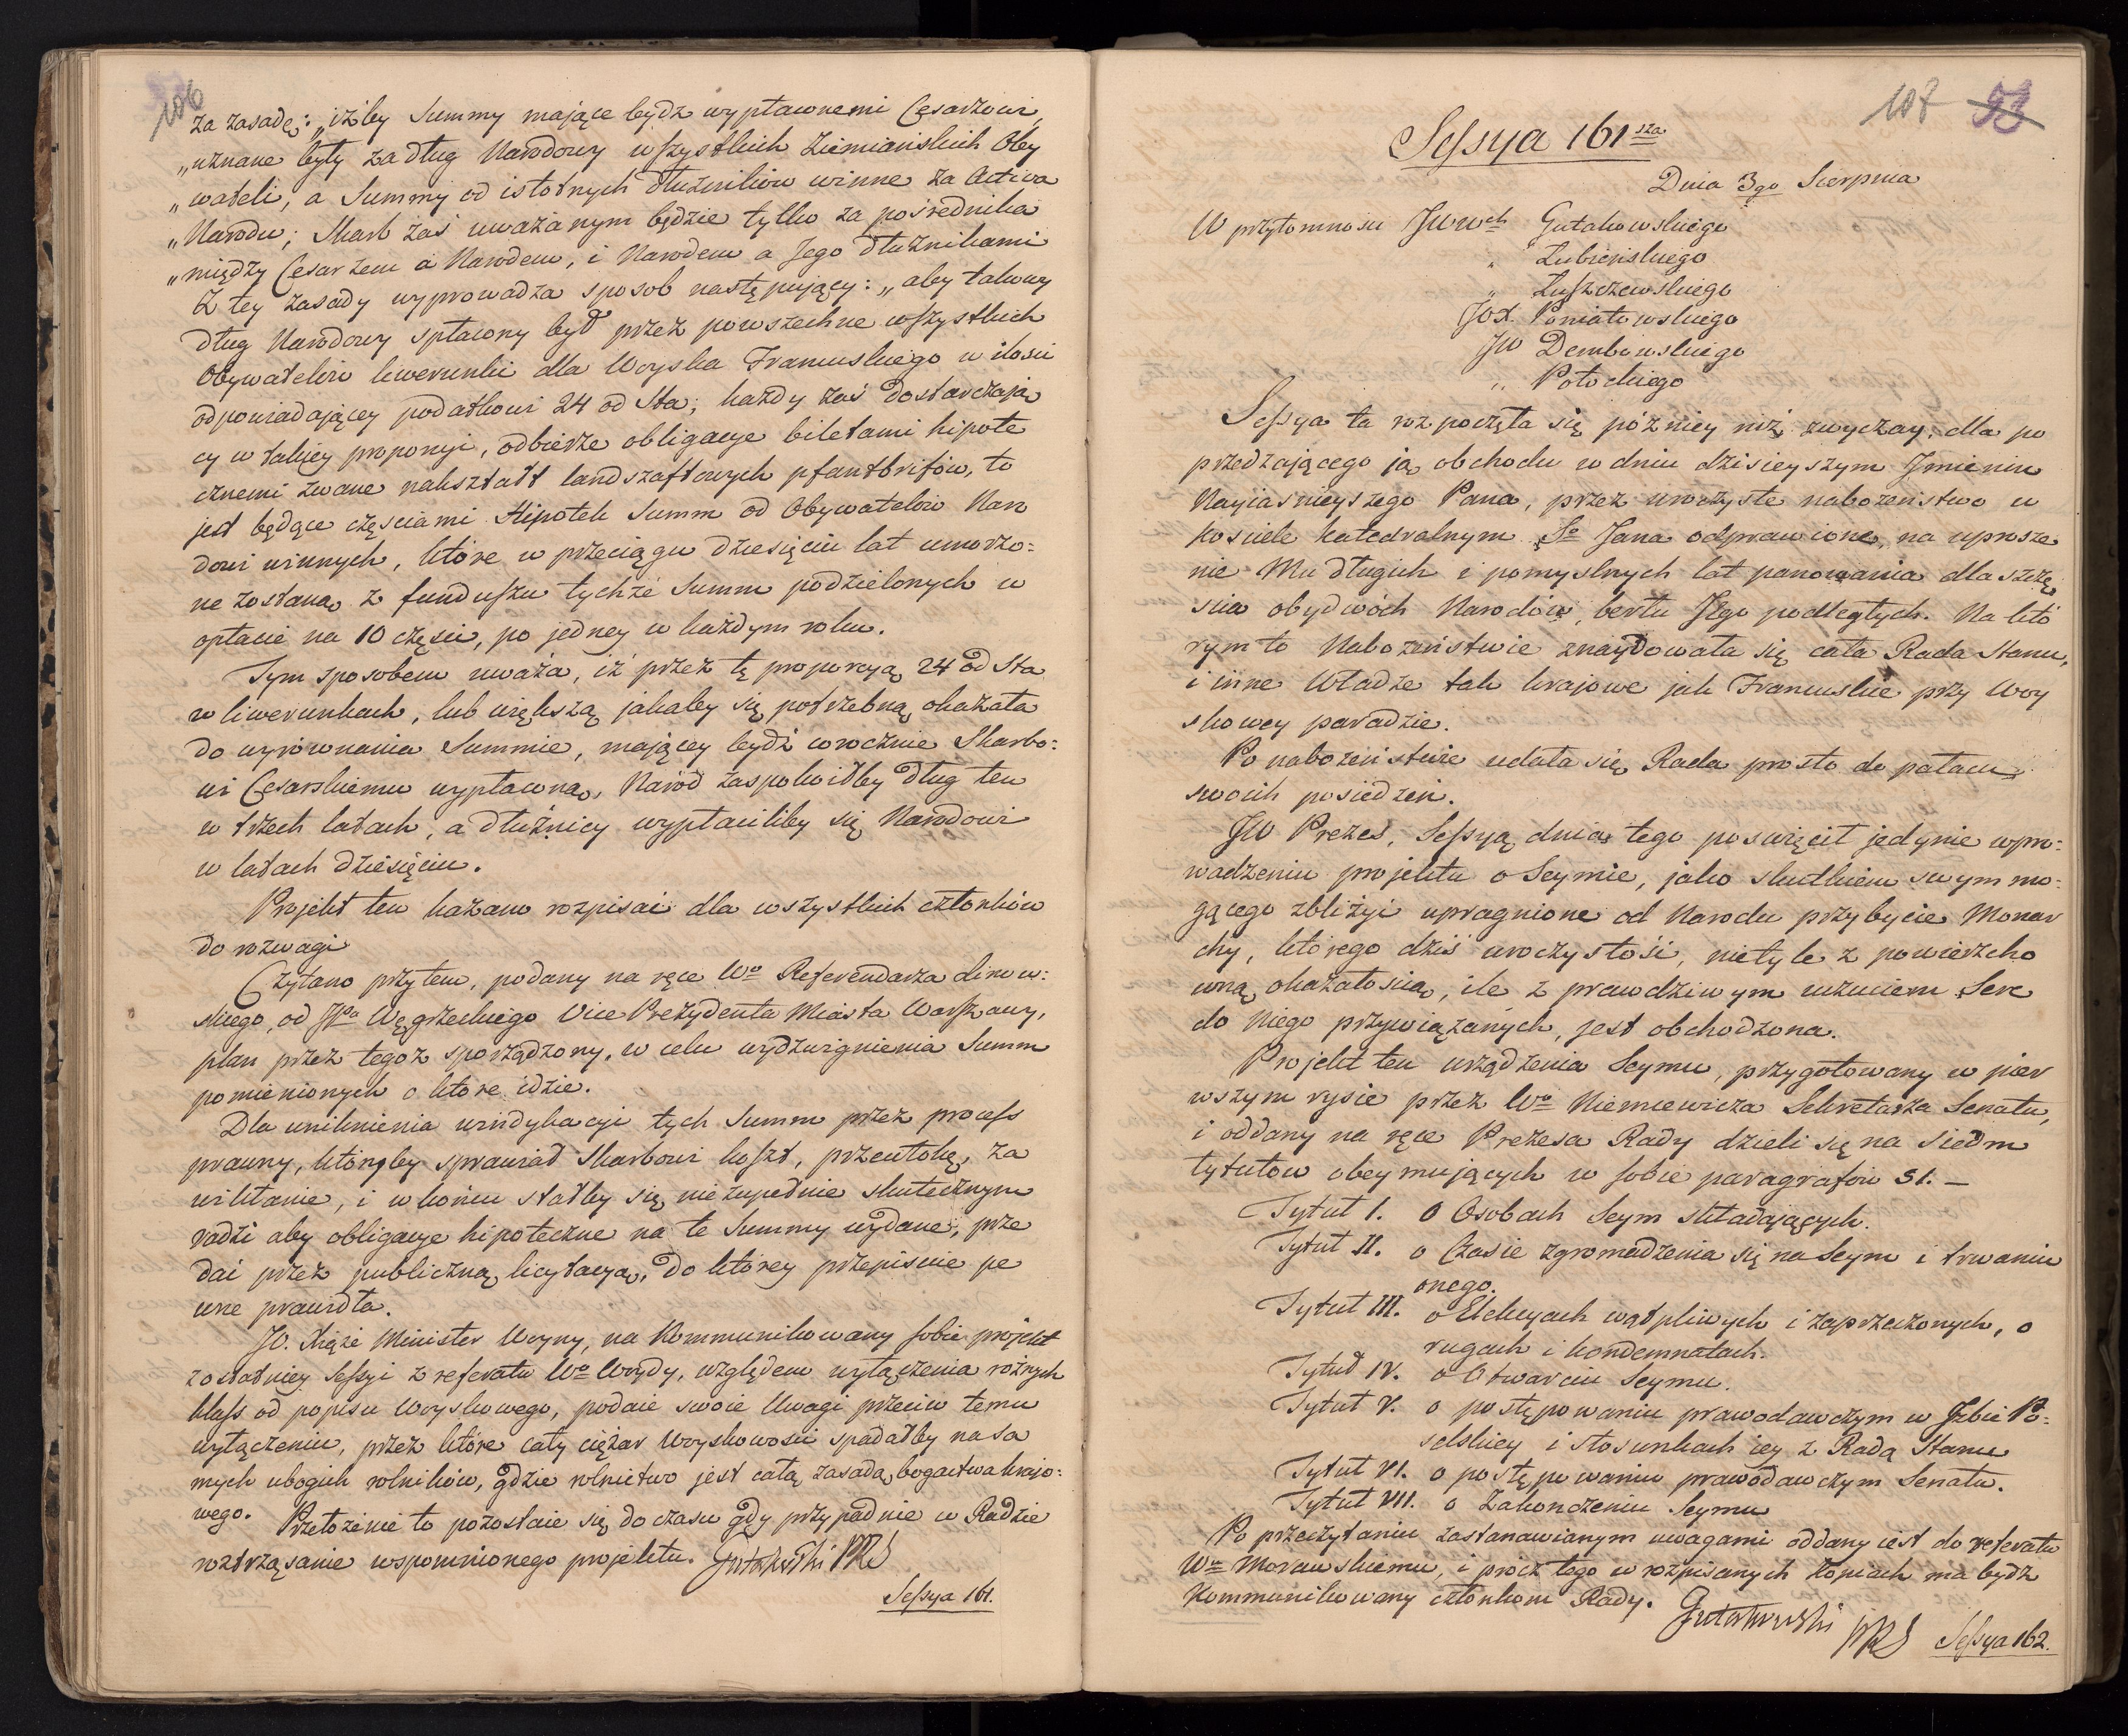 106
za zasadę: „iżby Summy mające bydz wypłaconemi Cesarzowi,
„uznane były za dług Narodowy wszystkich Ziemiańskich Oby
„wateli, a Summy od istotnych dłużników winne za Activa
„Narodu; Skarb zaś uważanym będzie tylko za pośrednika
„między Cesarzem a Narodem, i Narodem a Jego dłużnikami
Z tey zasady wyprowadza sposob następuiący: „aby takowy
dług Narodowy spłacony był przez powszechne wszystkich
Obywatelów liwerunki dla Woyska Francuskiego w ilości
odpowiadaiącey podatkowi 24 od Sta; każdy zaś dostarczaią
cy w takięy proporcyi, odbierze obligacye biletami hipote
cznemi zwane nakształt landszaftowych pfantbrifów, to
jest będące częściami Hipotek Summ od Obywatelów Naro
dowi winnych, które w przeciągu dziesięciu lat umorzo=
ne zostaną z funduszu tychże Summ podzielonych w
opłacie na 10 części, po jedney w każdym roku.
Tym sposobem uważa, iż przez tę proporcyą 24 od Sta
w liwerunkach, lub większą jakaby się potrzebną okazała
do wyrównania Summie, maiącey bydź corocznie Skarbo=
wi Cesarskiemu wypłaconą, Naród zaspokoiłby dług ten
w trzech latach, a dłużnicy wypłaciliby się Narodowi
w latach dziesięciu.
Projekt ten kazano rozpisać dla wszystkich członków
do rozwagi
Czytano przytem, podany na ręce Wo Referendarza Linow=
skiego, od JPa Węgrzeckiego Vice Prezydenta Miasta Warszawy,
plan przez tegoz sporządzony, w celu wydzwignienia Summ
pomienionych o które idzie.
Dla uniknienia windykacyi tych Summ przez process
prawny, któryby sprawiał Skarbowi koszt, przewłokę, za
wikłanie, i w końcu stałby się niezupełnie skutecznym
radzi aby obligacye hipoteczne na te Summy wydane, prze
dać przez publiczną licytacyą, do którey przepisuie pe
wne prawidła.
JO. Xiąże Minister Woyny, na Kommunikowany sobie projekt
z ostatniey Sessyi z referatu Wo Woydy, względem wyłączenia roznych
klass od popisu Woyskowego, podaie swoie Uwagi przeciw temu
wyłączeniu, przez które cały ciężar Woyskowości spadałby na sa
mych ubogich rolników, gdzie rolnictwo jest całą zasadą bogactwa krajo=
wego. Przełożenie to pozostaie się do czasu gdy przypadnie w Radzie
roztrząsanie wspomnionego projektu. Gutakowski PRS
Sessya 161.
107 93
Sessya 161sza
Dnia 3go Sierpnia
W przytomności JWWch Gutakowskiego
„ Łubieńskiego
„ Łuszczewskiego
JOX. Poniatowskiego
JW Dembowskiego
„ Potockiego
Sessya ta rozpoczęła się późniey niż zwyczay, dla po
przedzającego ją obchodu w dniu dzisieyszym Jmienin
Nayiaśnieyszego Pana, przez uroczyste nabożeństwo w
Kościele Katedralnym So Jana odprawione, na uprosze
nie Mu długich i pomyslnych lat panowania dla szczę
ścia obydwóch Narodów, bertu Jego podległych. Na któ
rym to Nabożeństwie znaydowała się cała Rada Stanu,
i inne Władze tak krajowe jak Francuskie przy Woy
skowey paradzie.
Po nabożeństwie udała się Rada prosto do pałacu
swoich posiedzeń.
JW Prezes, Sessyą dnia tego poswięcił jedynie wpro=
wadzeniu projektu o Seymie, jako skutkiem swym mo=
gącego zbliżyć upragnione od Narodu przybycie Monar
chy, którego dziś uroczystość, nietyle z powierzcho
wną okazałością, ile z prawdziwym uczuciem Serc
do Niego przywiązanych, jest obchodzona.
Projekt ten urządzenia Seymu, przygotowany w pier
wszym rysie przez Wo Niemcewicza Sekretarza Senatu,
i oddany na ręce Prezesa Rady dzieli się na siedm
tytułow obeymujących w sobie paragrafów 51. —
Tytuł I. O Osobach Seym składających.
Tytuł II. o Czasie zgromadzenia się na Seym i trwaniu
onego.
Tytuł III. o Elekcyach wątpliwych i zaprzeczonych, o
rugach i kondemnatach.
Tytuł IV. o Otwarciu Seymu.
Tytuł V. o postępowaniu prawodawczym w Jzbie Po=
selskiey i stosunkach iey z Radą Stanu
Tytuł VI. o postępowaniu prawodawczym Senatu.
Tytuł VII. o Zakonczeniu Seymu
Po przeczytaniu zastanawianym uwagami oddany iest do referatu
Wu Morawskiemu, i prócz tego w rozpisanych kopiach ma bydz
Kommunikowany członkom Rady. Gutakowski PRS
Sessya 162.